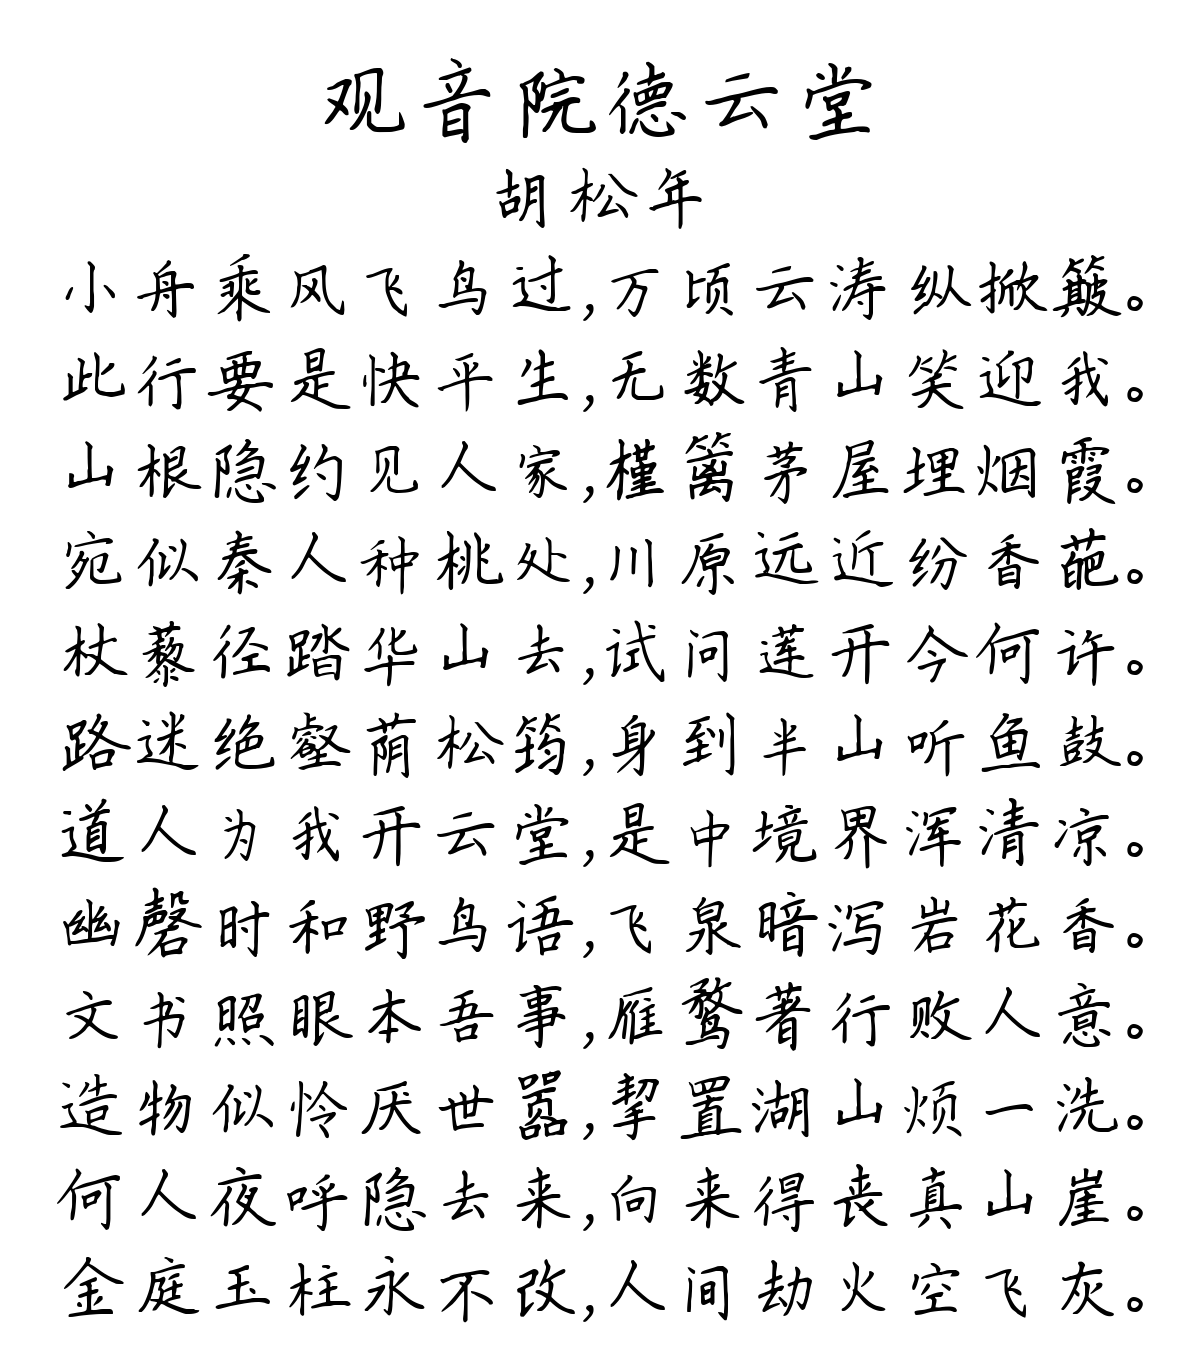 观音院德云堂
胡松年
小舟乘风飞鸟过,万顷云涛纵掀簸。
此行要是快平生,无数青山笑迎我。
山根隐约见人家,槿篱茅屋埋烟霞。
宛似秦人种桃处,川原远近纷香葩。
杖藜径踏华山去,试问莲开今何许。
路迷绝壑荫松筠,身到半山听鱼鼓。
道人为我开云堂,是中境界浑清凉。
幽磬时和野鸟语,飞泉暗泻岩花香。
文书照眼本吾事,雁鹜著行败人意。
造物似怜厌世嚣,挈置湖山烦一洗。
何人夜呼隐去来,向来得丧真山崖。
金庭玉柱永不改,人间劫火空飞灰。